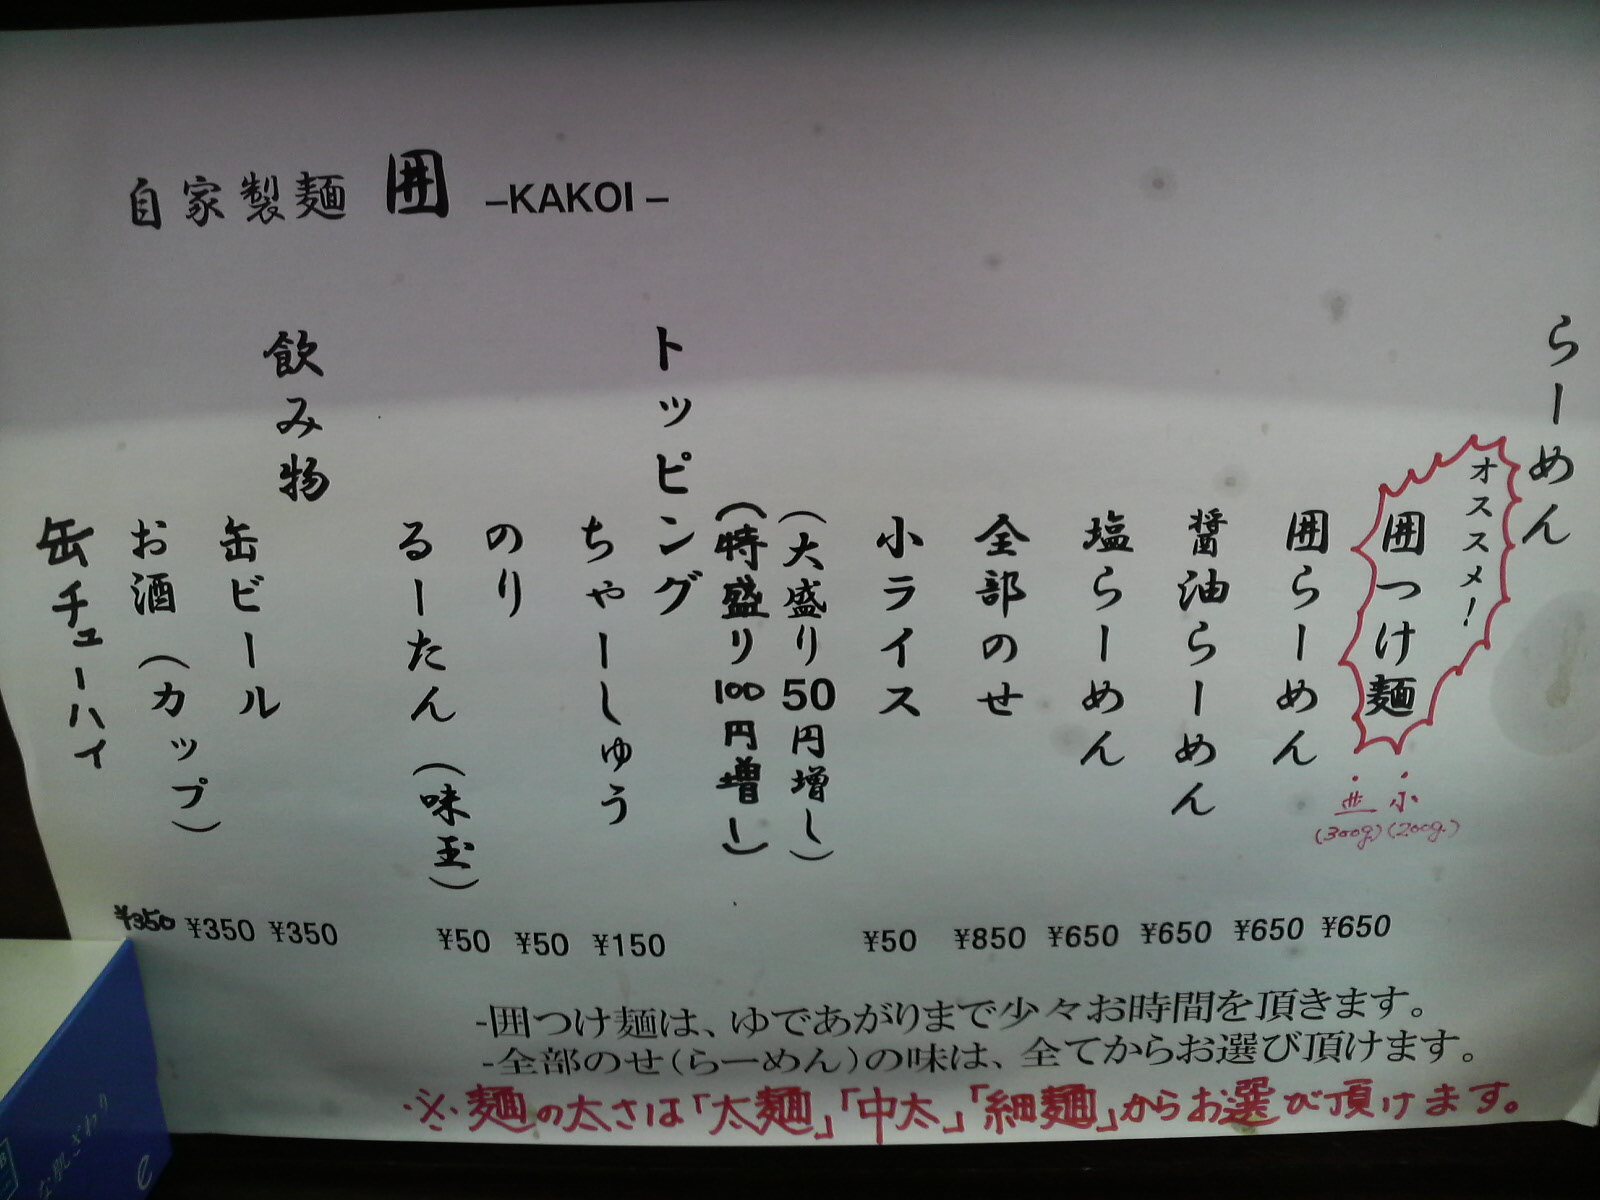 自家製麺 囲 –KAKOI–
らーめん
オススメ!
囲つけ麺
小 (200g)
並 (300g)
¥650
囲らーめん
¥650
醤油らーめん
¥650
塩らーめん
¥650
全部のせ
¥850
小ライス
¥50
(大盛り50円増し)
(特盛り100円増し)
トッピング
ちゃーしゅう
¥150
のり
¥50
るーたん(味玉)
¥50
飲み物
缶ビール
¥350
お酒(カップ)
¥350
缶チューハイ
¥350
-囲つけ麺は、ゆであがりまで少々お時間を頂きます。
-全部のせ(らーめん)の味は、全てからお選び頂けます。
※麺の太さは「太麺」「中太」「細麺」からお選び頂けます。
な肌ざわり
e